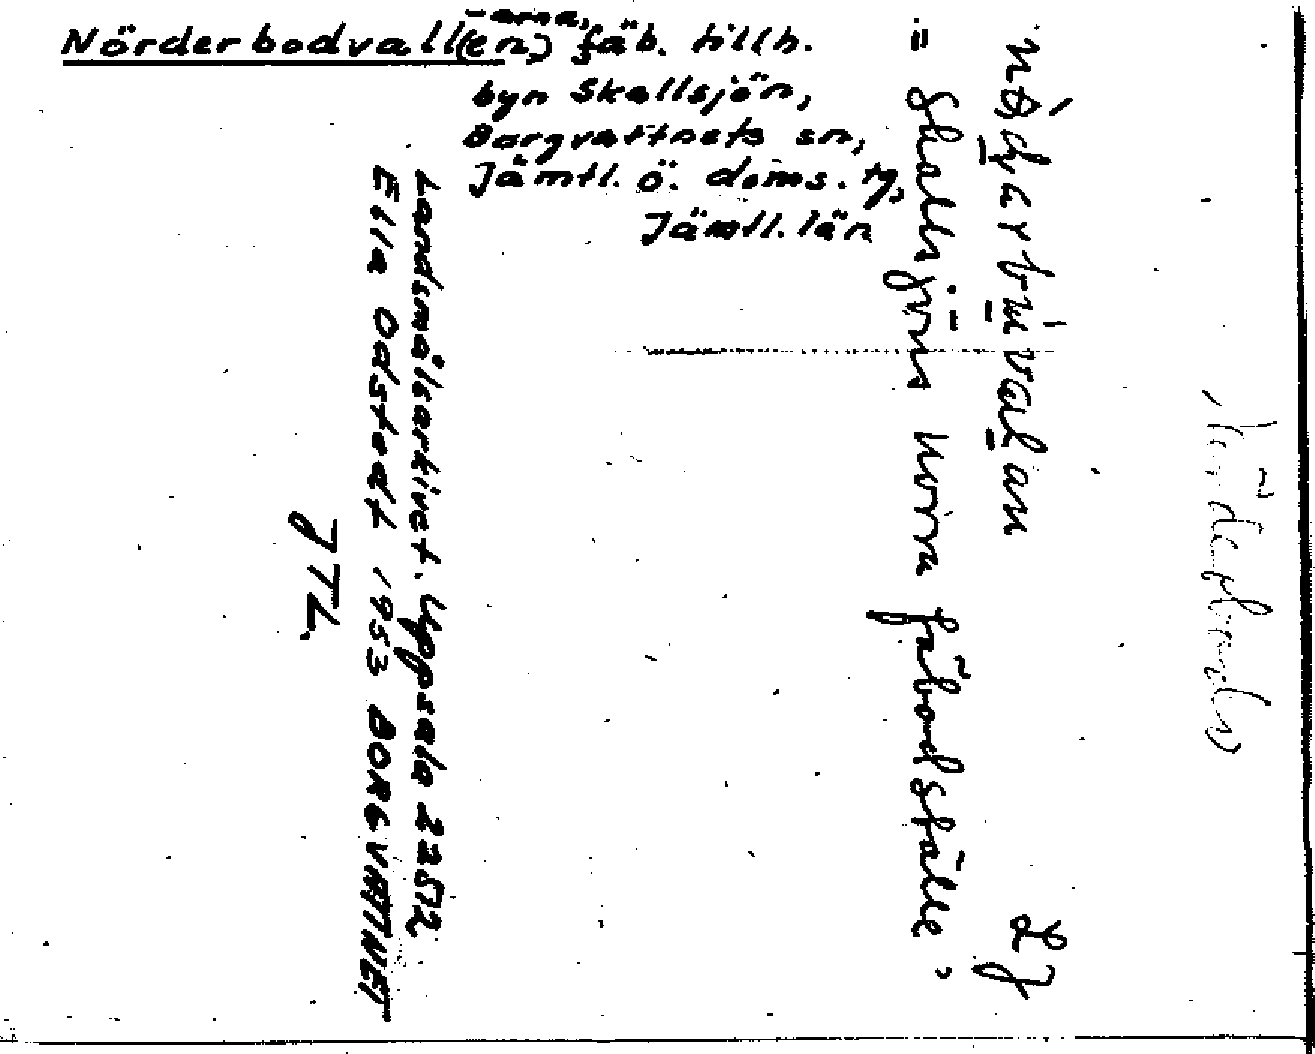 Nörderbodvall(en), -arna, fäb. tillh.
byn Skallsjön,
Borgvattnets sn,
Jämtl. ö. doms. tg,
Jämtl. län
= Skallsjöns norra fäbodställe
Lj
Landsmålsarkivet. Uppsala 22512
Ella Odstedt 1953 BORGVATTNET
JTL.